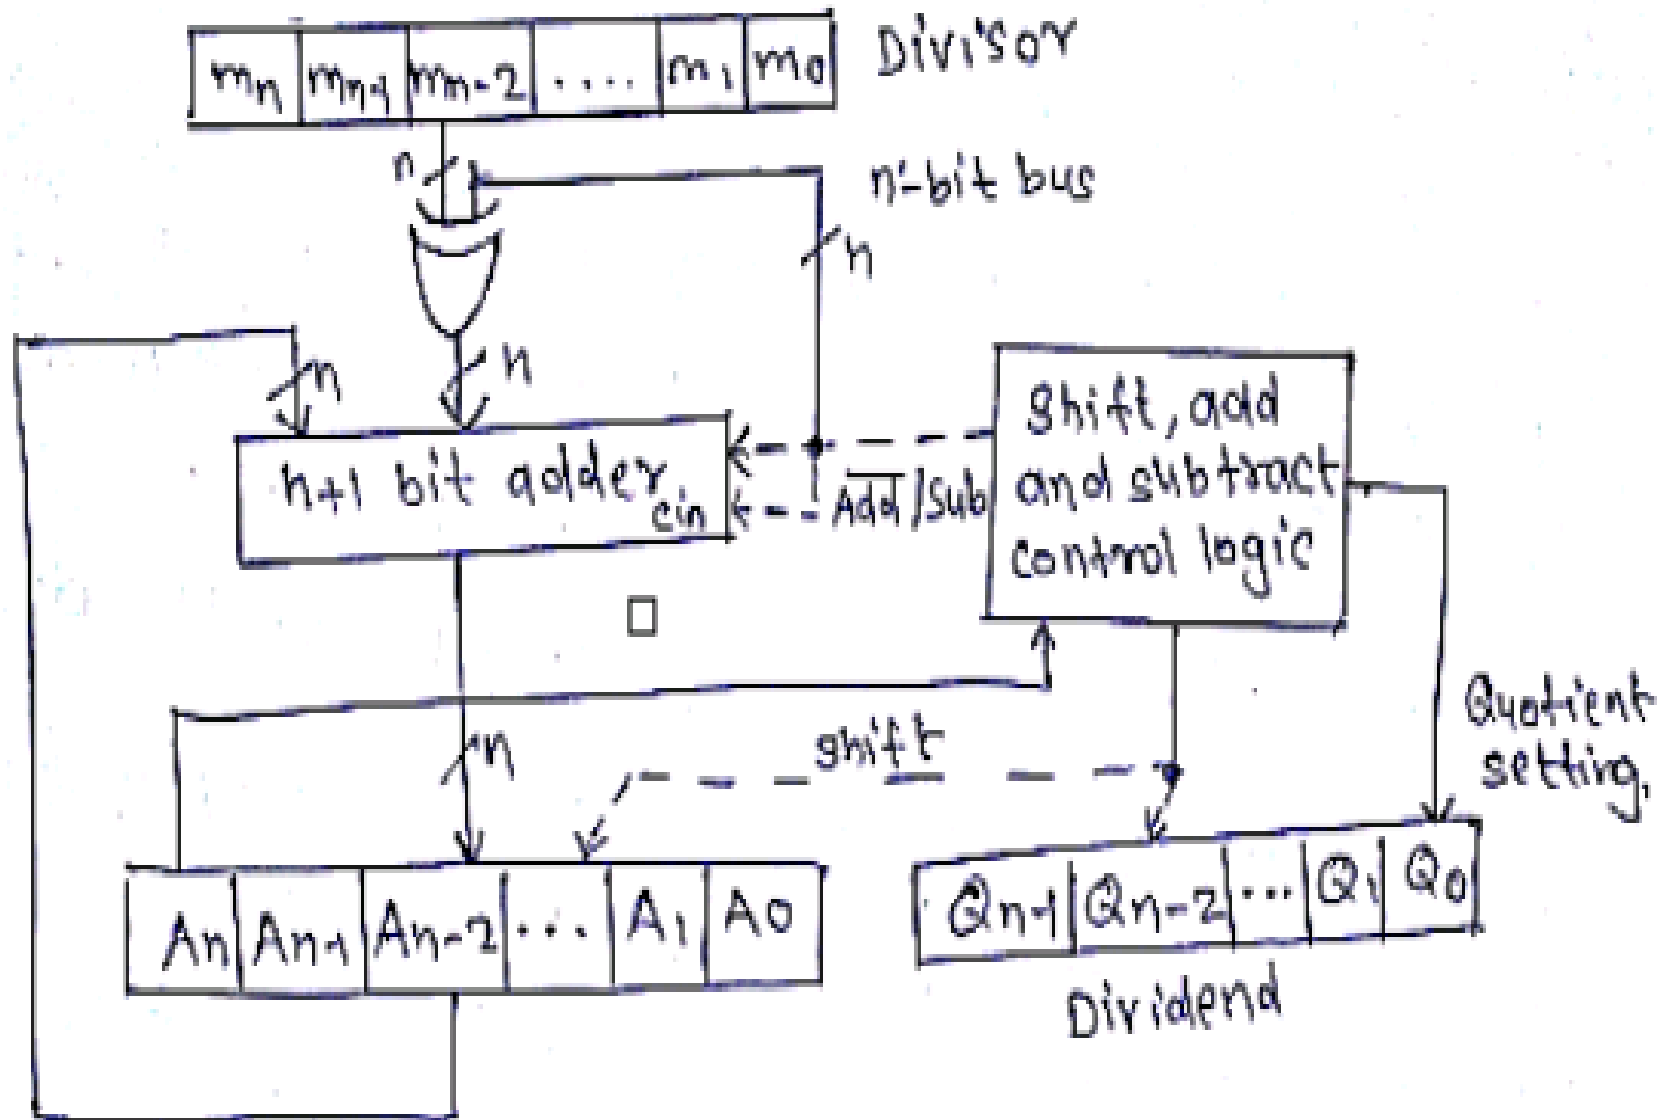 mn mn-1 mn-2 .... m1 m0 Divisor
n
n-bit bus
n
n
n
n+1 bit adder
cin
Add/Sub
shift, add
and subtract
control logic
n
shift
Quotient
setting,
An An-1 An-2 ... A1 A0
Qn-1 Qn-2 ... Q1 Q0
Dividend